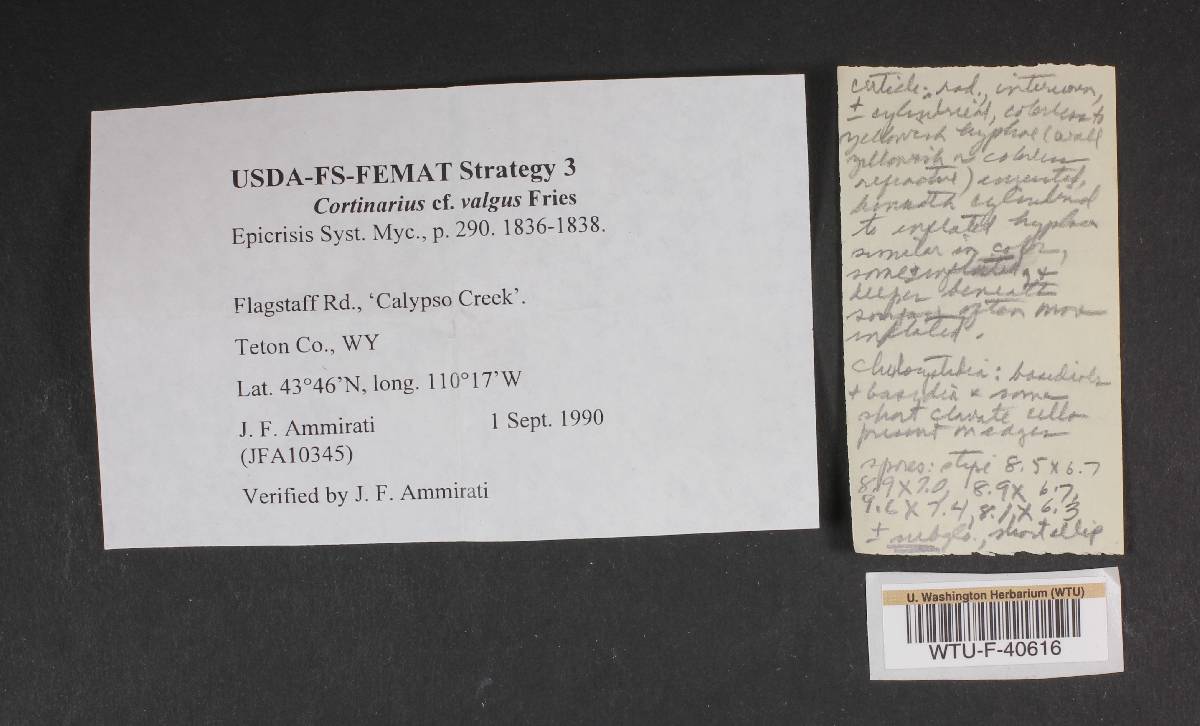 USDA-FS-FEMAT Strategy 3
Cortinarius cf. valgus Fries
Epicrisis Syst. Myc., p. 290. 1836-1838.
Flagstaff Rd., ‘Calypso Creek’.
Teton Co., WY
Lat. 43°46’N, long. 110°17’W
J. F. Ammirati 1 Sept. 1990
(JFA10345)
Verified by J. F. Ammirati
cuticle: rad., interwoven,
± cylindrical, colorless to
yellowish hyphae (wall
yellowish or colorless
refractive) encrusted,
beneath cylindrical
to inflated hyphae
similar in color,
deeper beneath
often more
inflated.
cheilocystidia: basidioles
+ basidia + some
short clavate cells
present on edges
spores: stipe 8.5 x 6.7
8.9 x 7.0, 8.9 x 6.7,
9.6 x 7.4, 8.1 x 6.3
± subglo., short ellip
U. Washington Herbarium (WTU)
WTU-F-40616